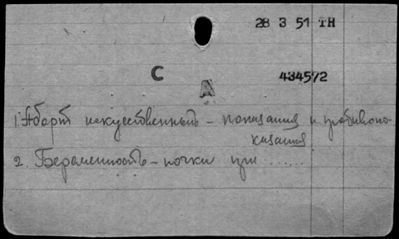 28 3 51 TH
С
434572
А
1. Аборт искусственный – показания и противопо-
казания
2. Беременность – почки при ......